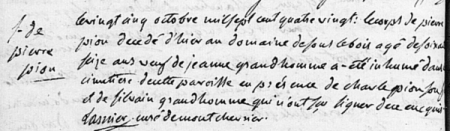 f. de
pierre
pion
le vingt cinq octobre mil sept cent quatre vingt: le corps de pierre
pion decedé d'hier au domaine de sous le bois agé de soix
seize ans veuf de jeanne grandhomme a eté inhumé dans
cimetiere de cette paroisse en presence de charle pion son
et de silvain grandhomme qui n'ont sçu signer de ce enquis
curé de montchevrier.